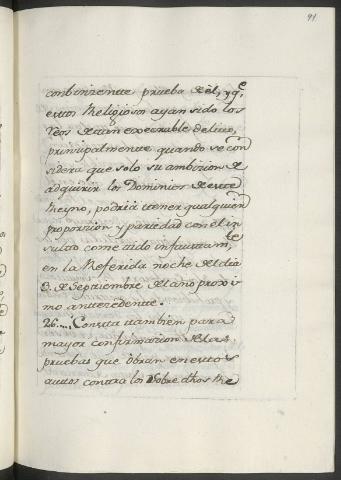 91
combinzente prueba de él, y q.e
estos Religiosos ayan sido los
Reos de tan execrable delito,
principalmente quando se con
sidera que solo su ambicion de
adquirir los Dominios de este
Reyno, podria tener qualquier
proporcion y paridad con el in
sulto cometido infaustam.te
en la Referida noche del dia
3. de Septiembre del año proxi
mo antecedente.
26.... Consta tambien para
mayor confirmacion de las
pruebas que obran en estos
autos contra los Sobre dhos Re